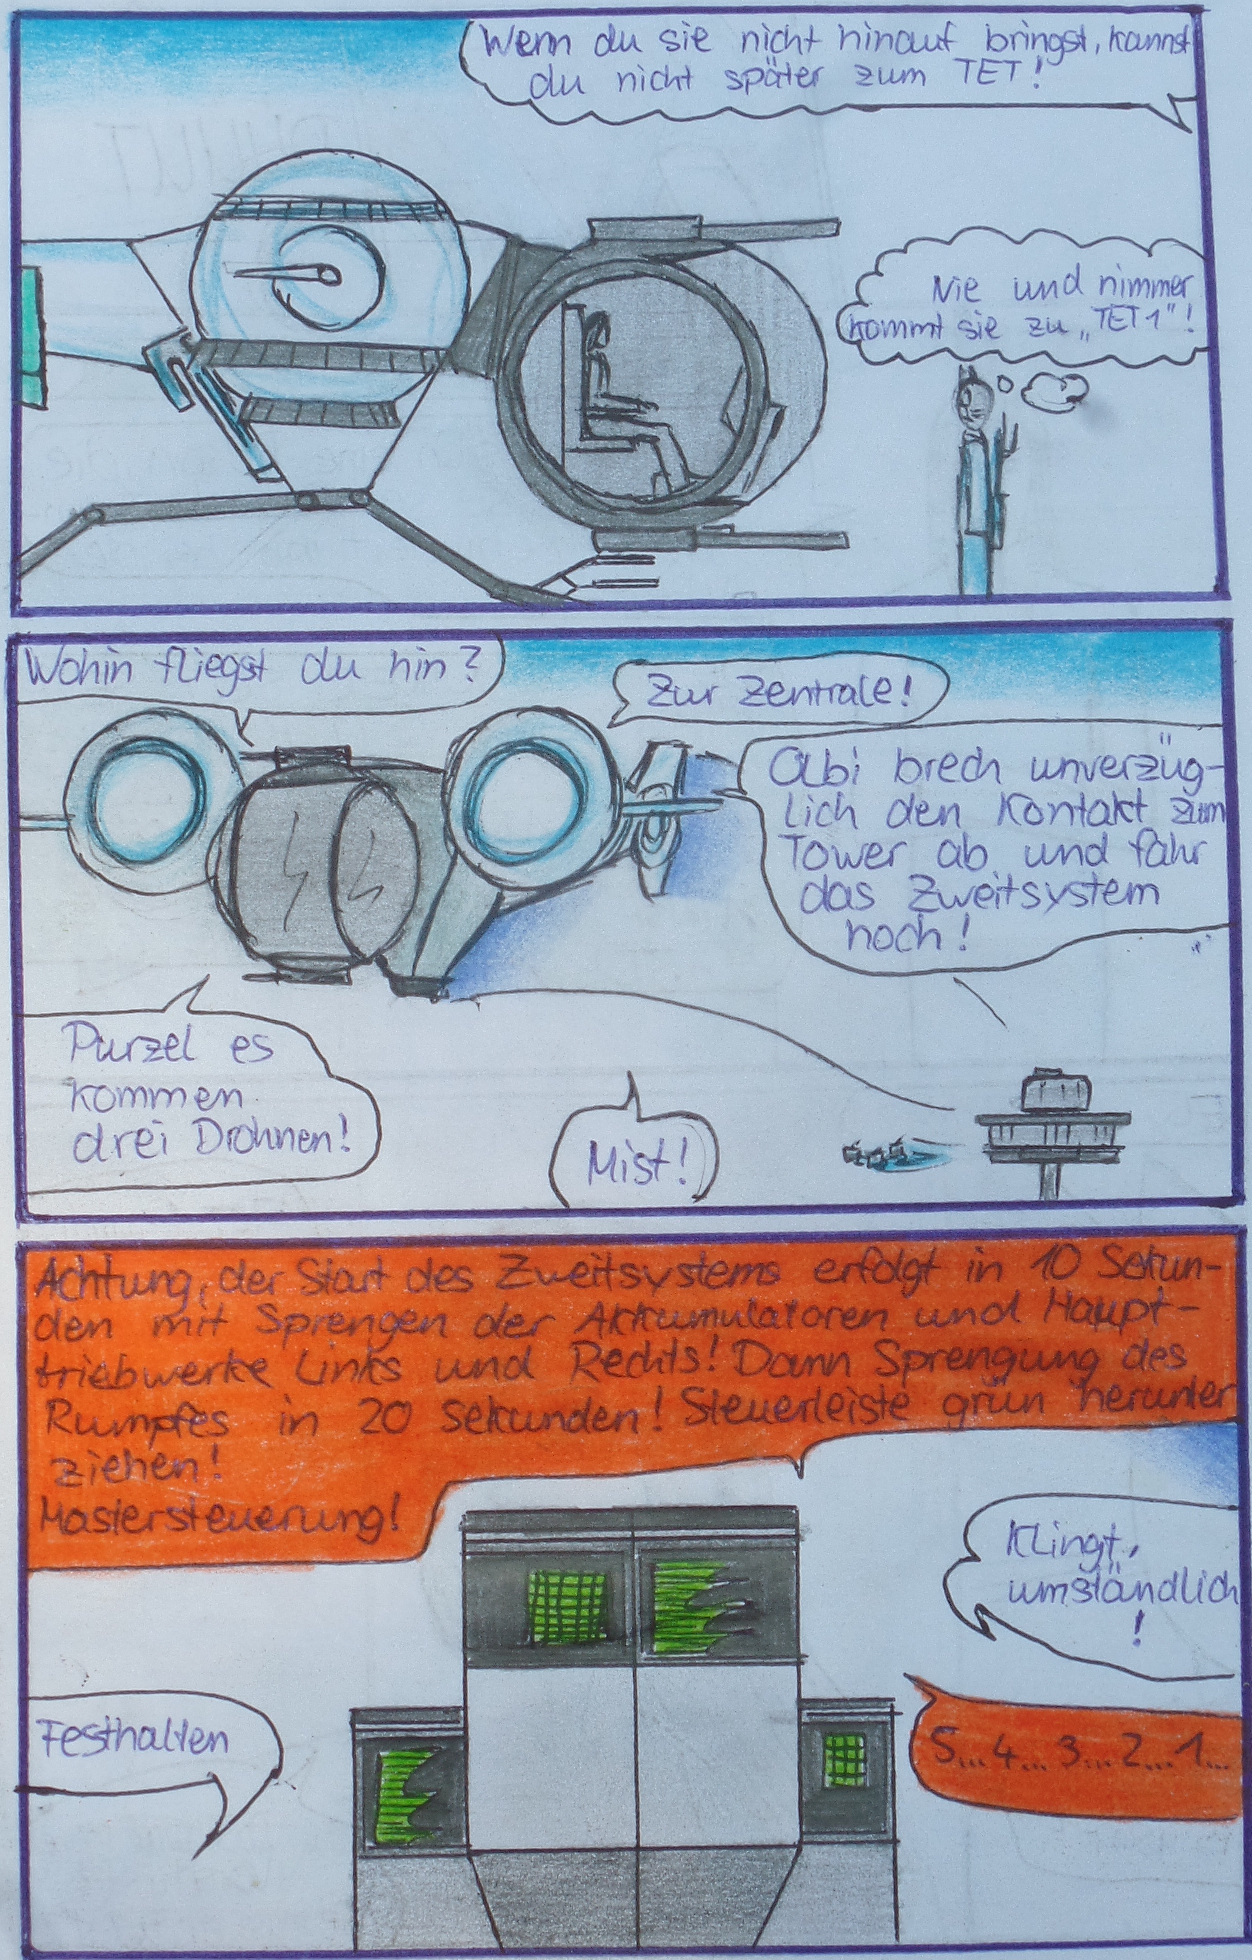 Wenn du sie nicht hinauf bringst, kannst
du nicht später zum TET!
Nie und nimmer
kommt sie zu „TET1"!
Wohin fliegst du hin?
Zur Zentrale!
Albi brech unverzüg-
lich den Kontakt zum
Tower ab und fahr
das Zweitsystem
hoch!
Purzel es
kommen
drei Drohnen!
Mist!
Achtung, der Start des Zweitsystems erfolgt in 10 Sekun-
den mit Sprengen der Akkumulatoren und Haupt-
triebwerke Links und Rechts! Dann Sprengung des
Rumpfes in 20 Sekunden! Steuerleiste grün herunter
ziehen!
Mastersteuerung!
Klingt,
umständlich
!
Festhalten
5... 4... 3... 2... 1...